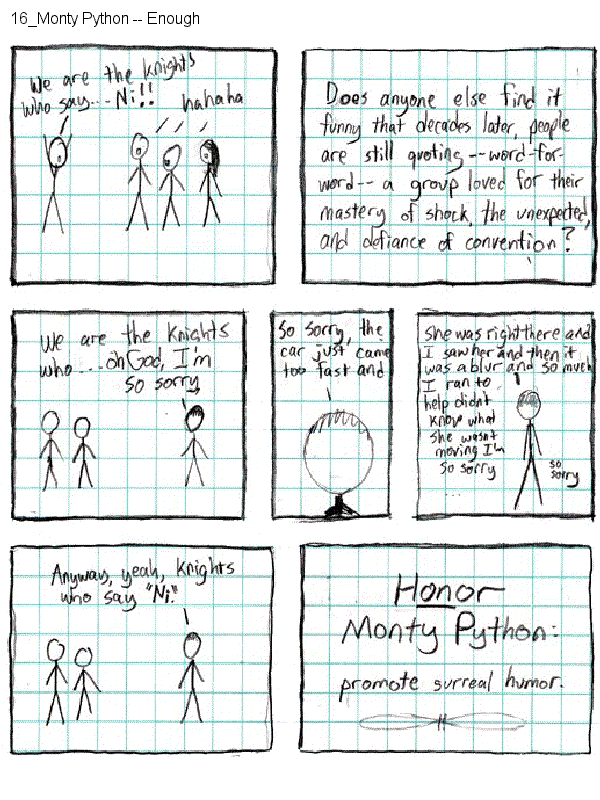 16_Monty Python -- Enough
We are the knights
who say---Ni!!
hahaha
Does anyone else find it
funny that decades later, people
are still quoting--word-for-
word-- a group loved for their
mastery of shock, the unexpected,
and defiance of convention?
We are the knights
who ...oh God, I'm
so sorry,
so sorry, the
car just came
too fast and
she was right there and
I saw her and then it
was a blur and so much
I ran to
help didn't
know what
she wasn't
moving I'm
so sorry
...
so
sorry
Anyway, yeah, knights
who say "Ni."
Honor
Monty Python:
promote surreal humor.